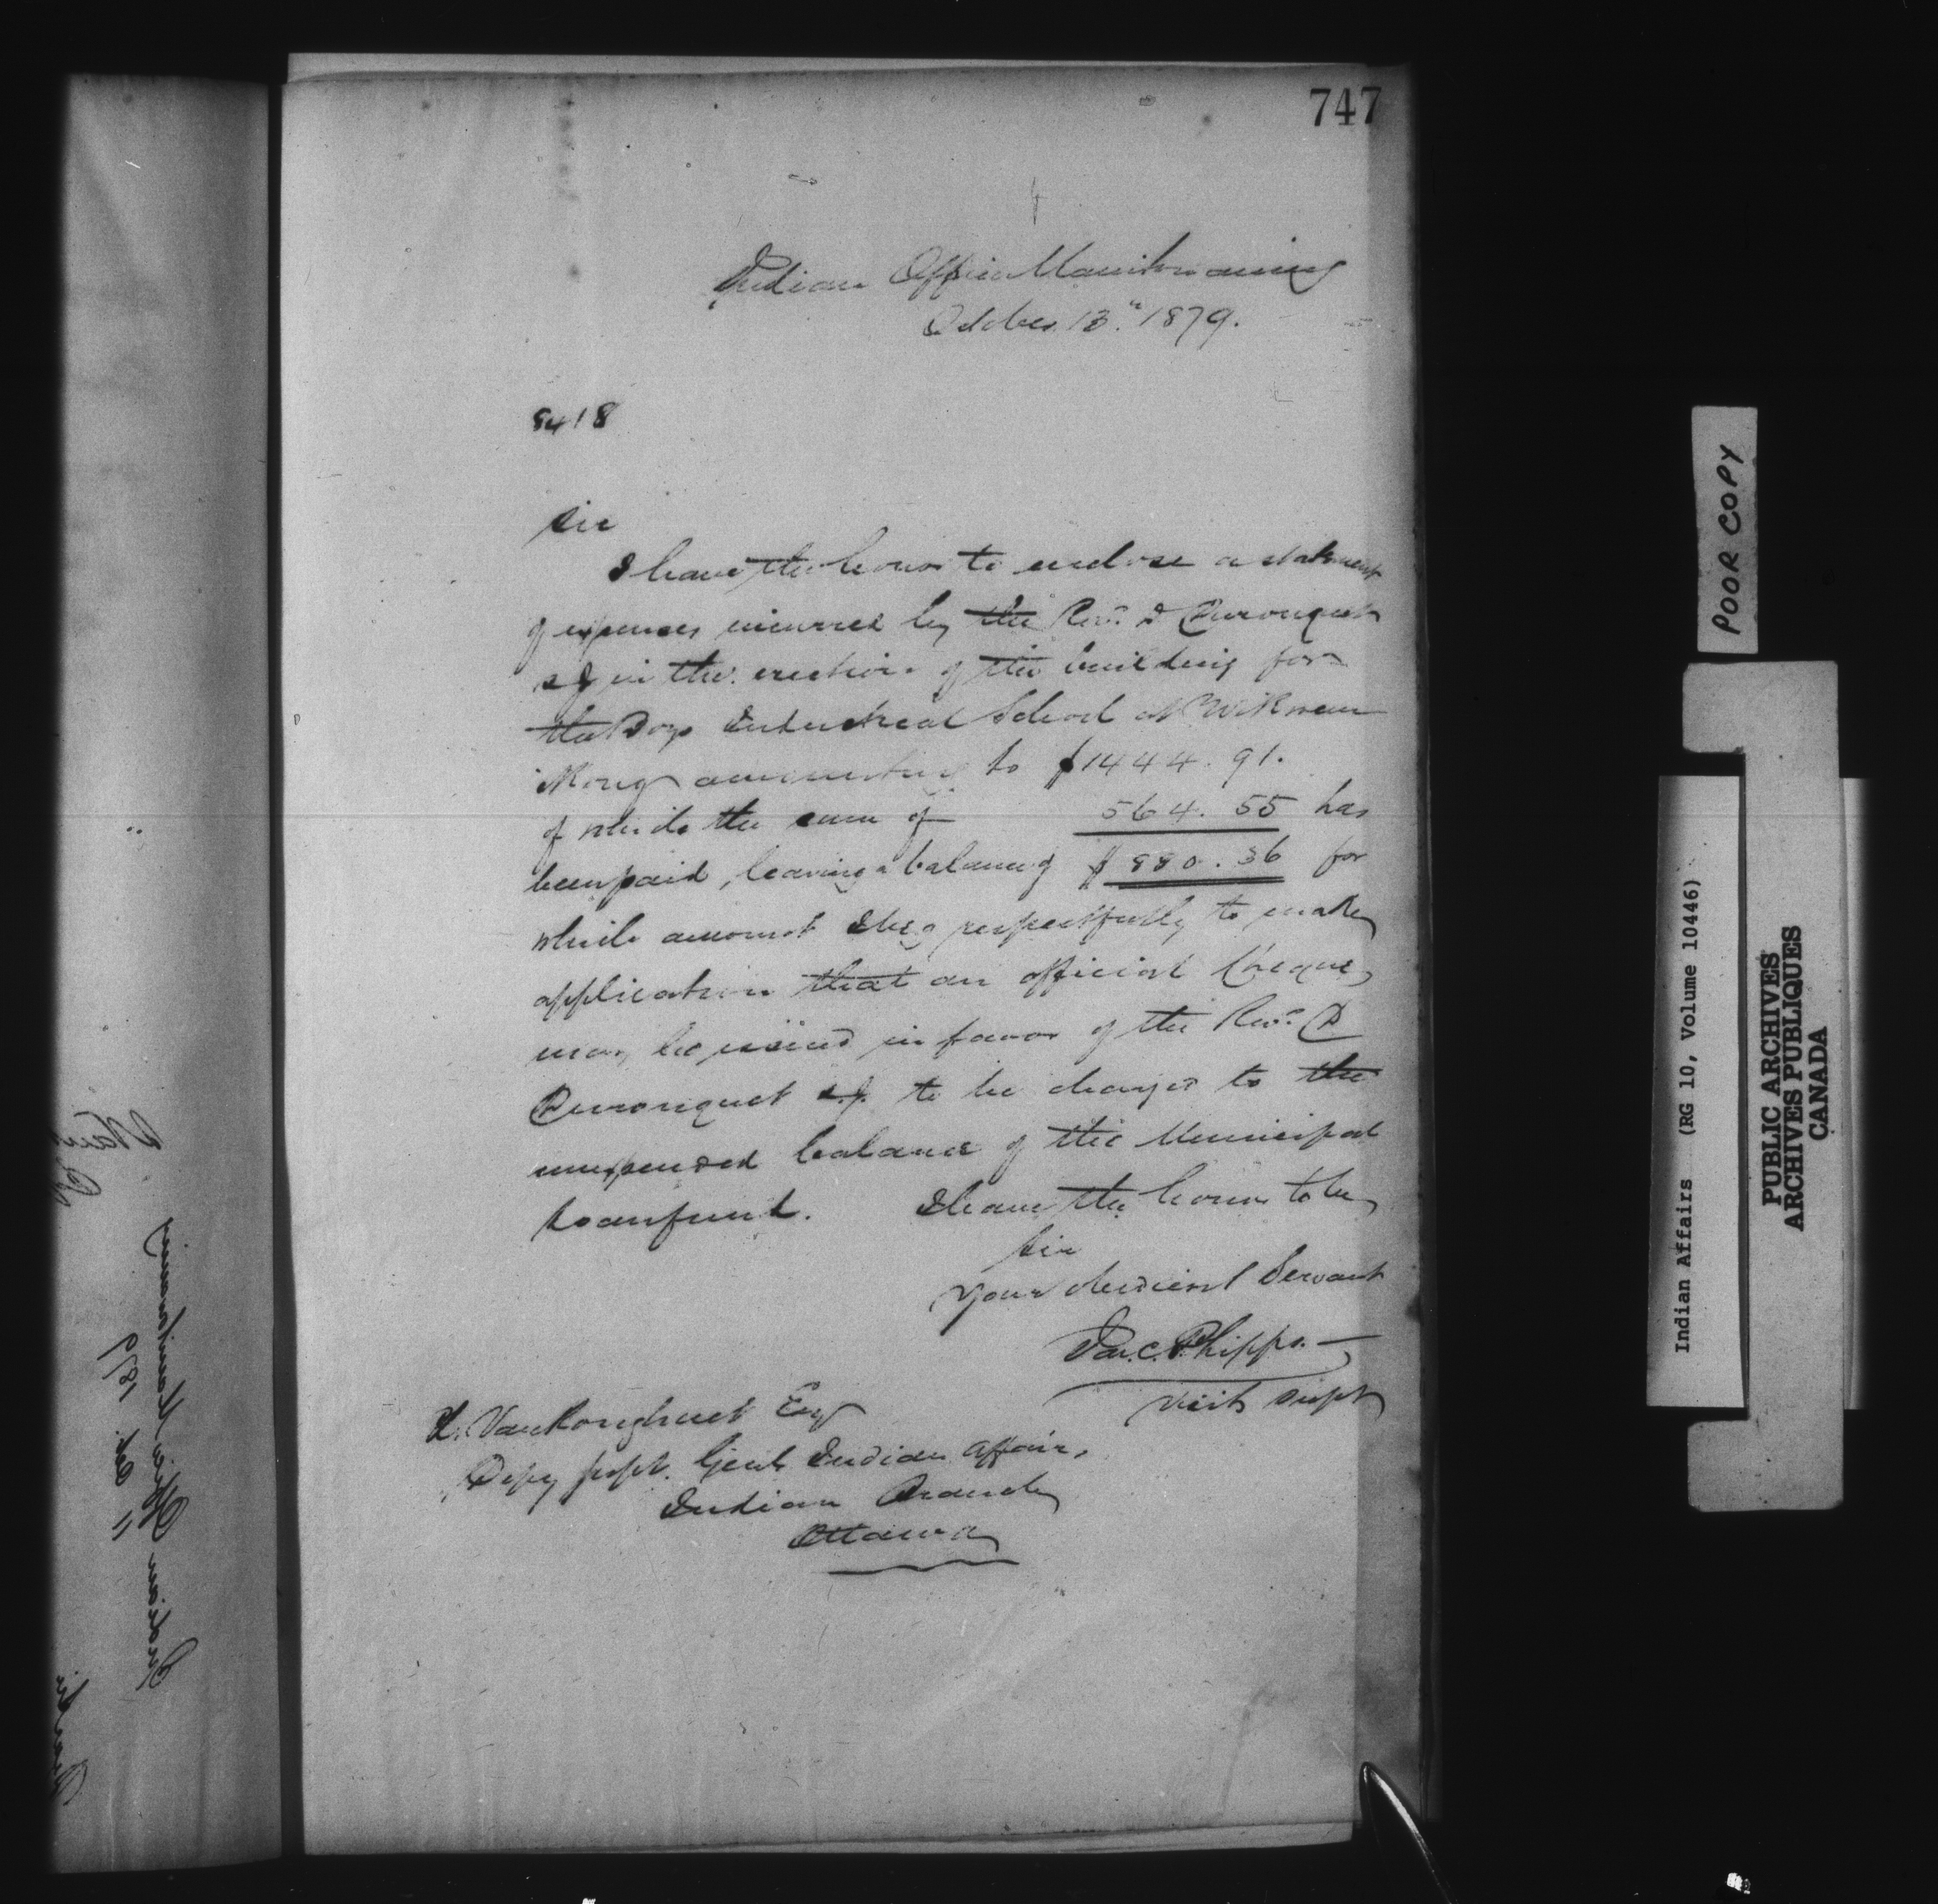 747
Indian Office Manitowaning
October 13th 1879.
8418
Sir
I have the honor to enclose a statement
of expenses incurred by the Revd. D Duronquet
s.j in the erection of the building for
the Boys Industrial School at Wikwem
ikong amounting to $1444.91.
of which the sum of 564.55 has
been paid, leaving a balance of $880.36 for
which amount I beg respectfully to make
application that an official Cheque
may be issued in favor of the Revd. D
Duronquet s.j. to be charged to the
unexpended balance of the Municipal
Loan fund. I have the honor to be
Sir
Your obedient Servant
Jas. C. Phipps.
Visit Supt
L. VanKoughnet Esq
Depy Supt. Genl. Indian Affairs
Indian Branch
Ottawa
Indian Office Manitowaning
11 Oct. 1879
POOR COPY
Indian Affairs (RG 10, Volume 10446)
PUBLIC ARCHIVES
ARCHIVES PUBLIQUES
CANADA